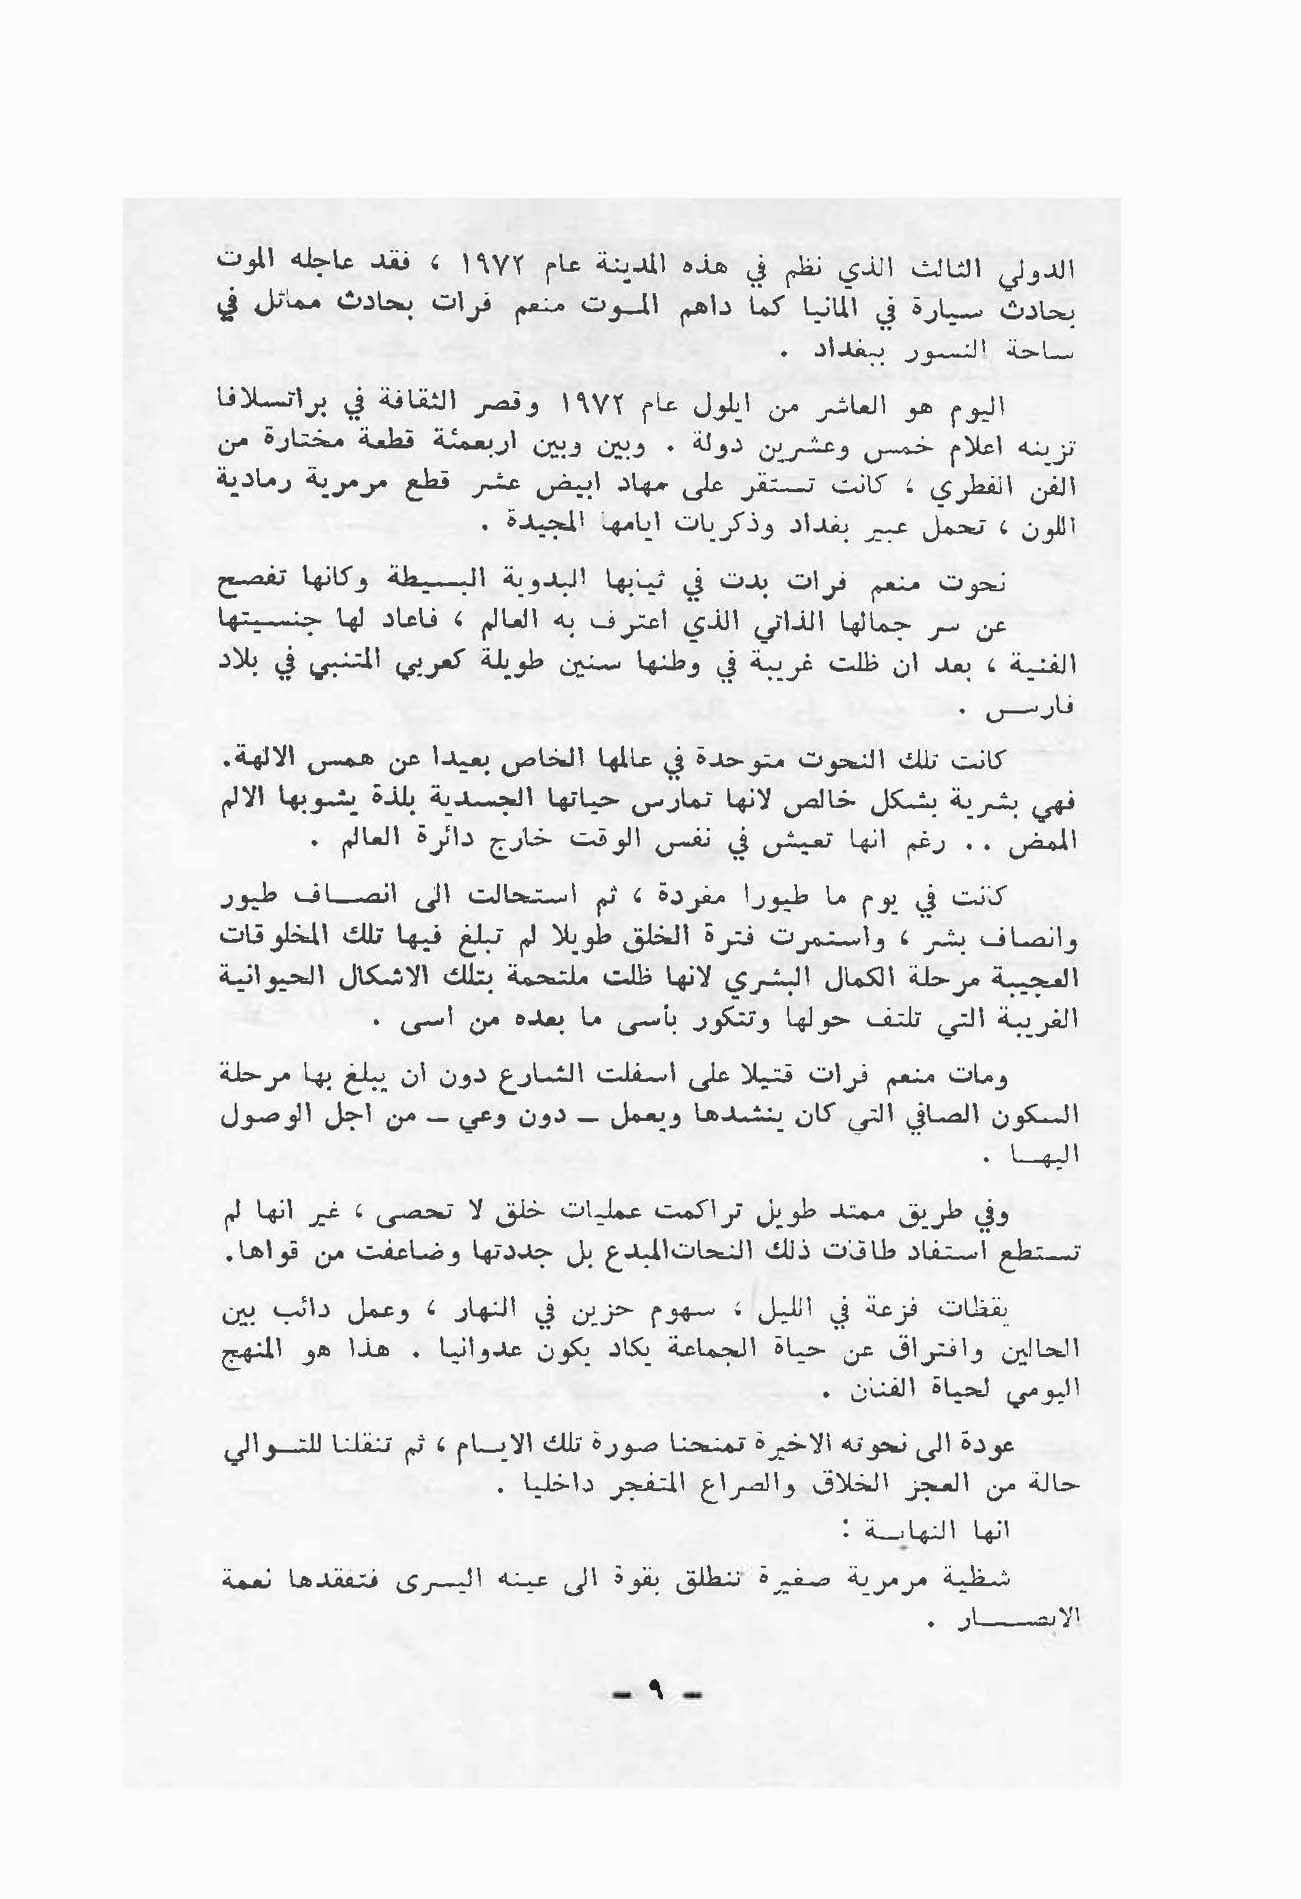 الدولي الثالث الذي نظم في هذه المدينة عام ١٩٧٢ ، فقد عاجله الموت
بحادث سيارة في المانيا كما داهم المـوت منعم فرات بحادث مماثل في
ساحة النسور ببغداد .
اليوم هو العاشر من ايلول عام ١٩٧٢ وقصر الثقافة في براتسلافا
تزينه اعلام خمس وعشرين دولة . وبين وبين اربعمئة قطعة مختارة من
الفن الفطري ، كانت تستقر على مهاد ابيض عشر قطع مرمرية رمادية
اللون ، تحمل عبير بغداد وذكريات ايامها المجيدة .
نحوت منعم فرات بدت في ثيابها البدوية البسيطة وكانها تفصح
عن سر جمالها الذاتي الذي اعترف به العالم ، فاعاد لها جنسيتها
الفنية ، بعد ان ظلت غريبة في وطنها سنين طويلة كعربي المتنبي في بلاد
فارس .
كانت تلك النحوت متوحدة في عالمها الخاص بعيدا عن همس الالهة.
فهي بشرية بشكل خالص لانها تمارس حياتها الجسدية بلذة يشوبها الالم
الممض .. رغم انها تعيش في نفس الوقت خارج دائرة العالم .
كانت في يوم ما طيورا مغردة ، ثم استحالت الى انصـاف طيور
وانصاف بشر ، واستمرت فترة الخلق طويلا لم تبلغ فيها تلك المخلوقات
العجيبة مرحلة الكمال البشري لانها ظلت ملتحمة بتلك الاشكال الحيوانية
الغريبة التي تلتف حولها وتتكور بأسى ما بعده من اسى .
ومات منعم فرات قتيلا على اسفلت الشارع دون ان يبلغ بها مرحلة
السكون الصافي التي كان ينشدها ويعمل ـ دون وعي ـ من اجل الوصول
اليهـا .
وفي طريق ممتد طويل تراكمت عمليات خلق لا تحصى ، غير انها لم
تستطع استفاد طاقات ذلك النحات المبدع بل جددتها وضاعفت من قواها.
يقظات فزعة في الليل ، سهوم حزين في النهار ، وعمل دائب بين
الحالين وافتراق عن حياة الجماعة يكاد يكون عدوانيا . هذا هو المنهج
اليومي لحياة الفنان .
عودة الى نحوته الاخيرة تمنحنا صورة تلك الايـام ، ثم تنقلنا للتـوالي
حالة من العجز الخلاق والصراع المتفجر داخليا .
انها النهايـة :
شظية مرمرية صغيرة تنطلق بقوة الى عينه اليسرى فتفقدها نعمة
الابصــار .
ـ ٩ ـ